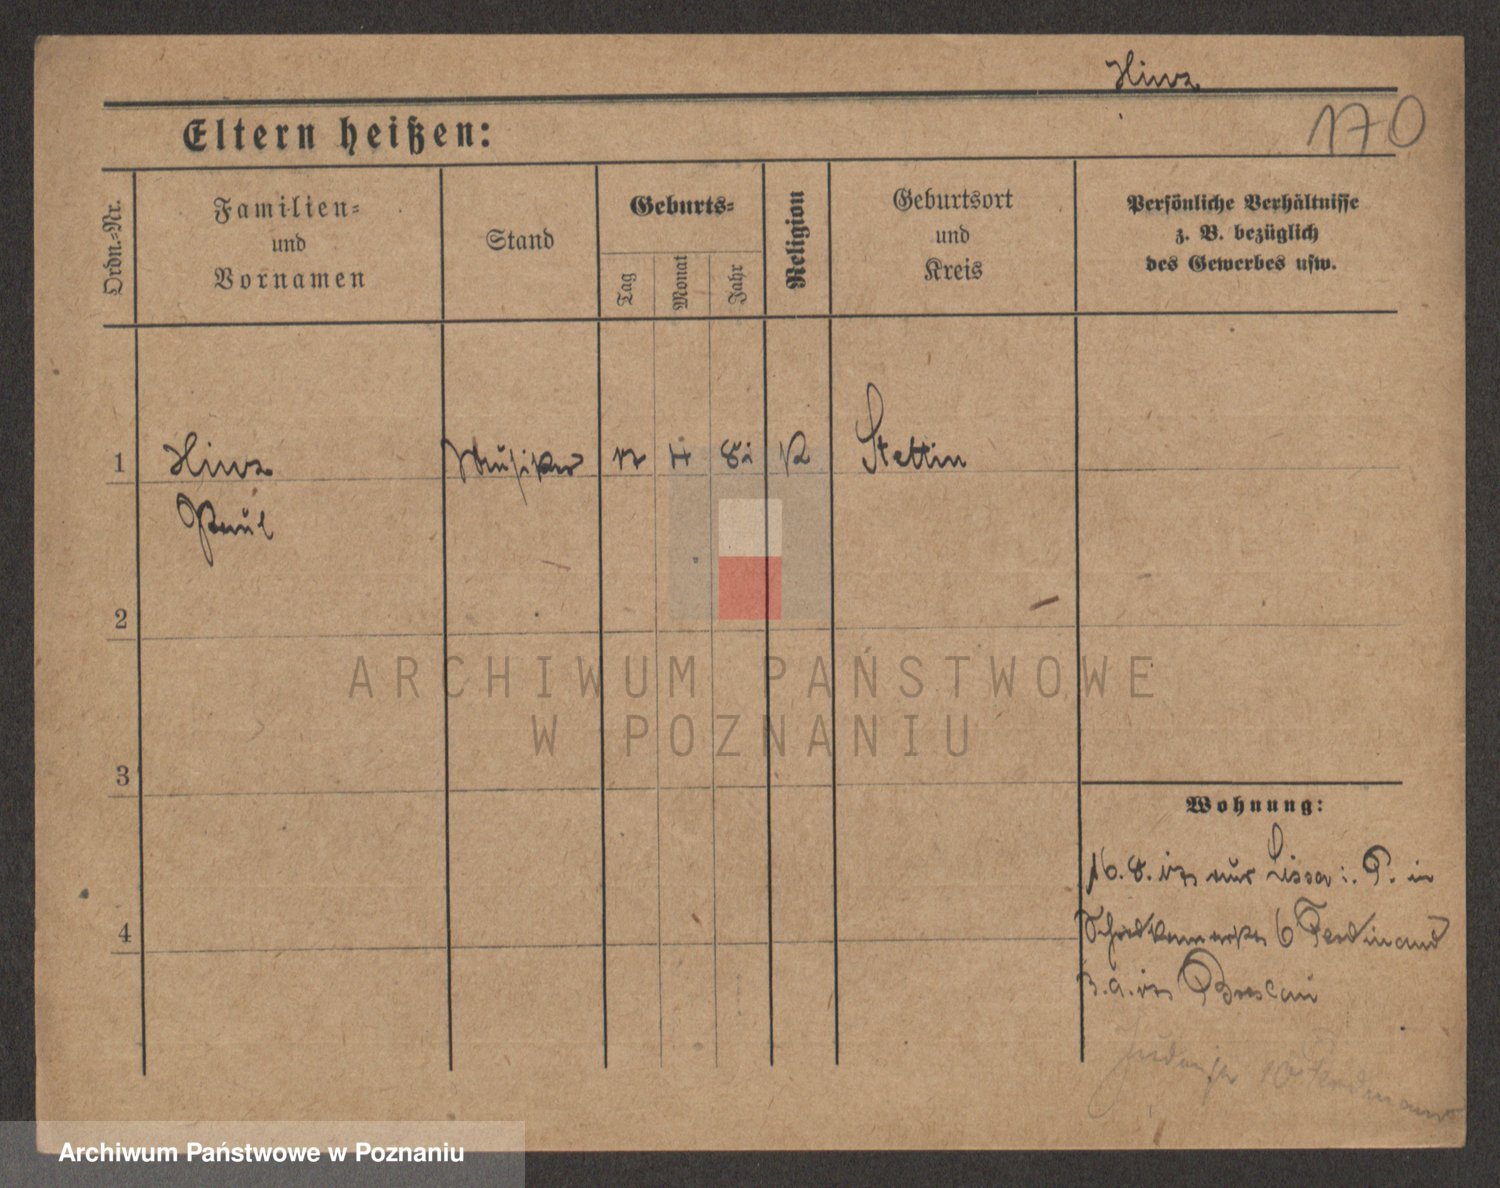 Hinz
170
Eltern heißen:
Ordn.=Nr.
Familien=
und
Vornamen
Stand
Geburts=
Tag
Monat
Jahr
Religion
Geburtsort
und
Kreis
Persönliche Verhältnisse
z. B. bezüglich
des Gewerbes usw.
1 Hinz Musiker 4 Stettin
Paul
2
ARCHIWUM PAŃSTWOWE
W POZNANIU
3
Wohnung:
16. 8. aus Lissa i. P. in
4
6 Ferdinand
Breslau
Ferdinand
Archiwum Państwowe w Poznaniu